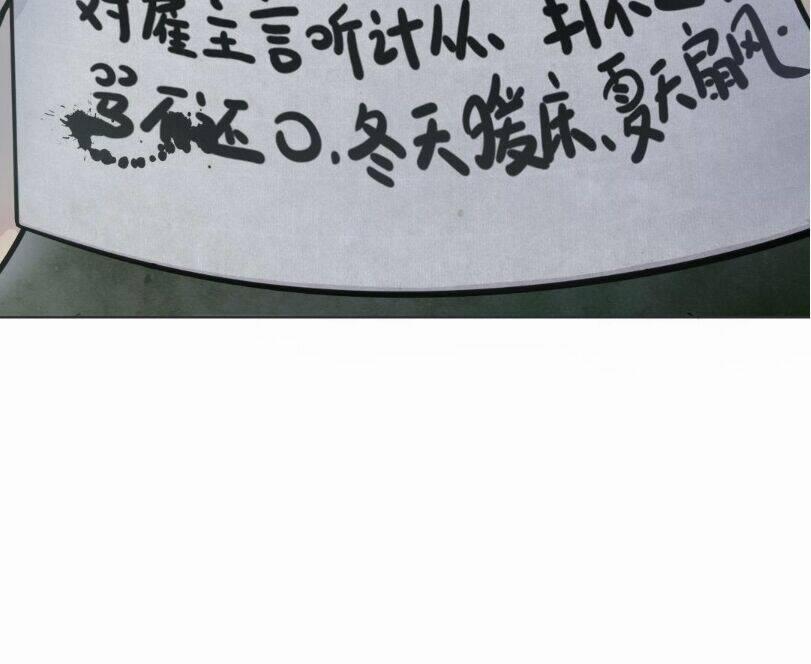 对雇主言听计从、打不
骂不还口.冬天暖床、夏天扇风.